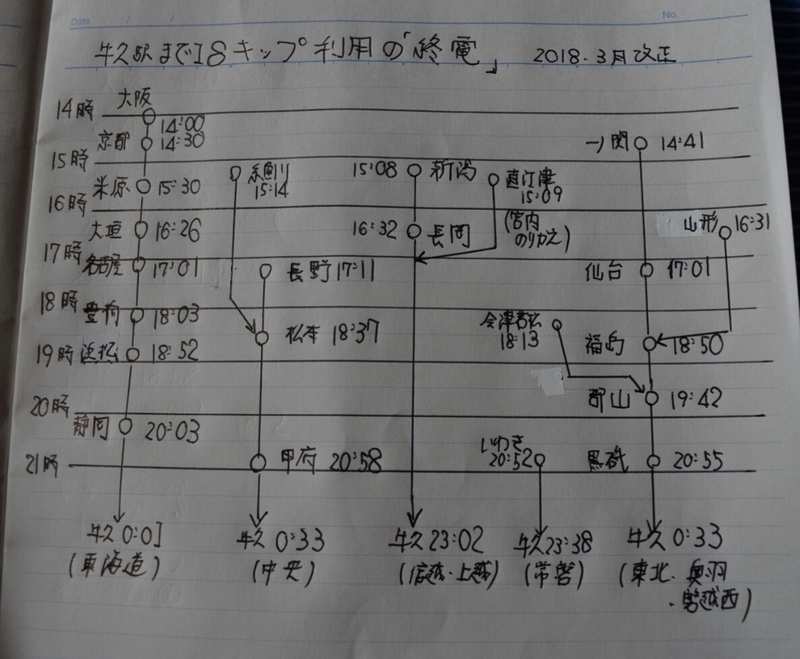 Date
No.
牛久駅まで18キップ利用の「終電」 2018.3月改正
14時
大阪
14:00
京都 14:30
一ノ関 14:41
15時
糸魚川
15:14
15:08 新潟
直江津
15:09
米原 15:30
16時
(宮内
のりかえ)
大垣 16:26
16:32 長岡
山形 16:31
17時
名古屋 17:01
長野 17:11
仙台 17:01
18時
豊橋 18:03
松本 18:37
会津若松
18:13
福島 18:50
19時 浜松 18:52
郡山 19:42
20時
静岡 20:03
21時
甲府 20:58
いわき
20:52
黒磯 20:55
牛久 0:01
(東海道)
牛久 0:33
(中央)
牛久 23:02
(信越・上越)
牛久 23:38
(常磐)
牛久 0:33
(東北・奥羽
・磐越西)